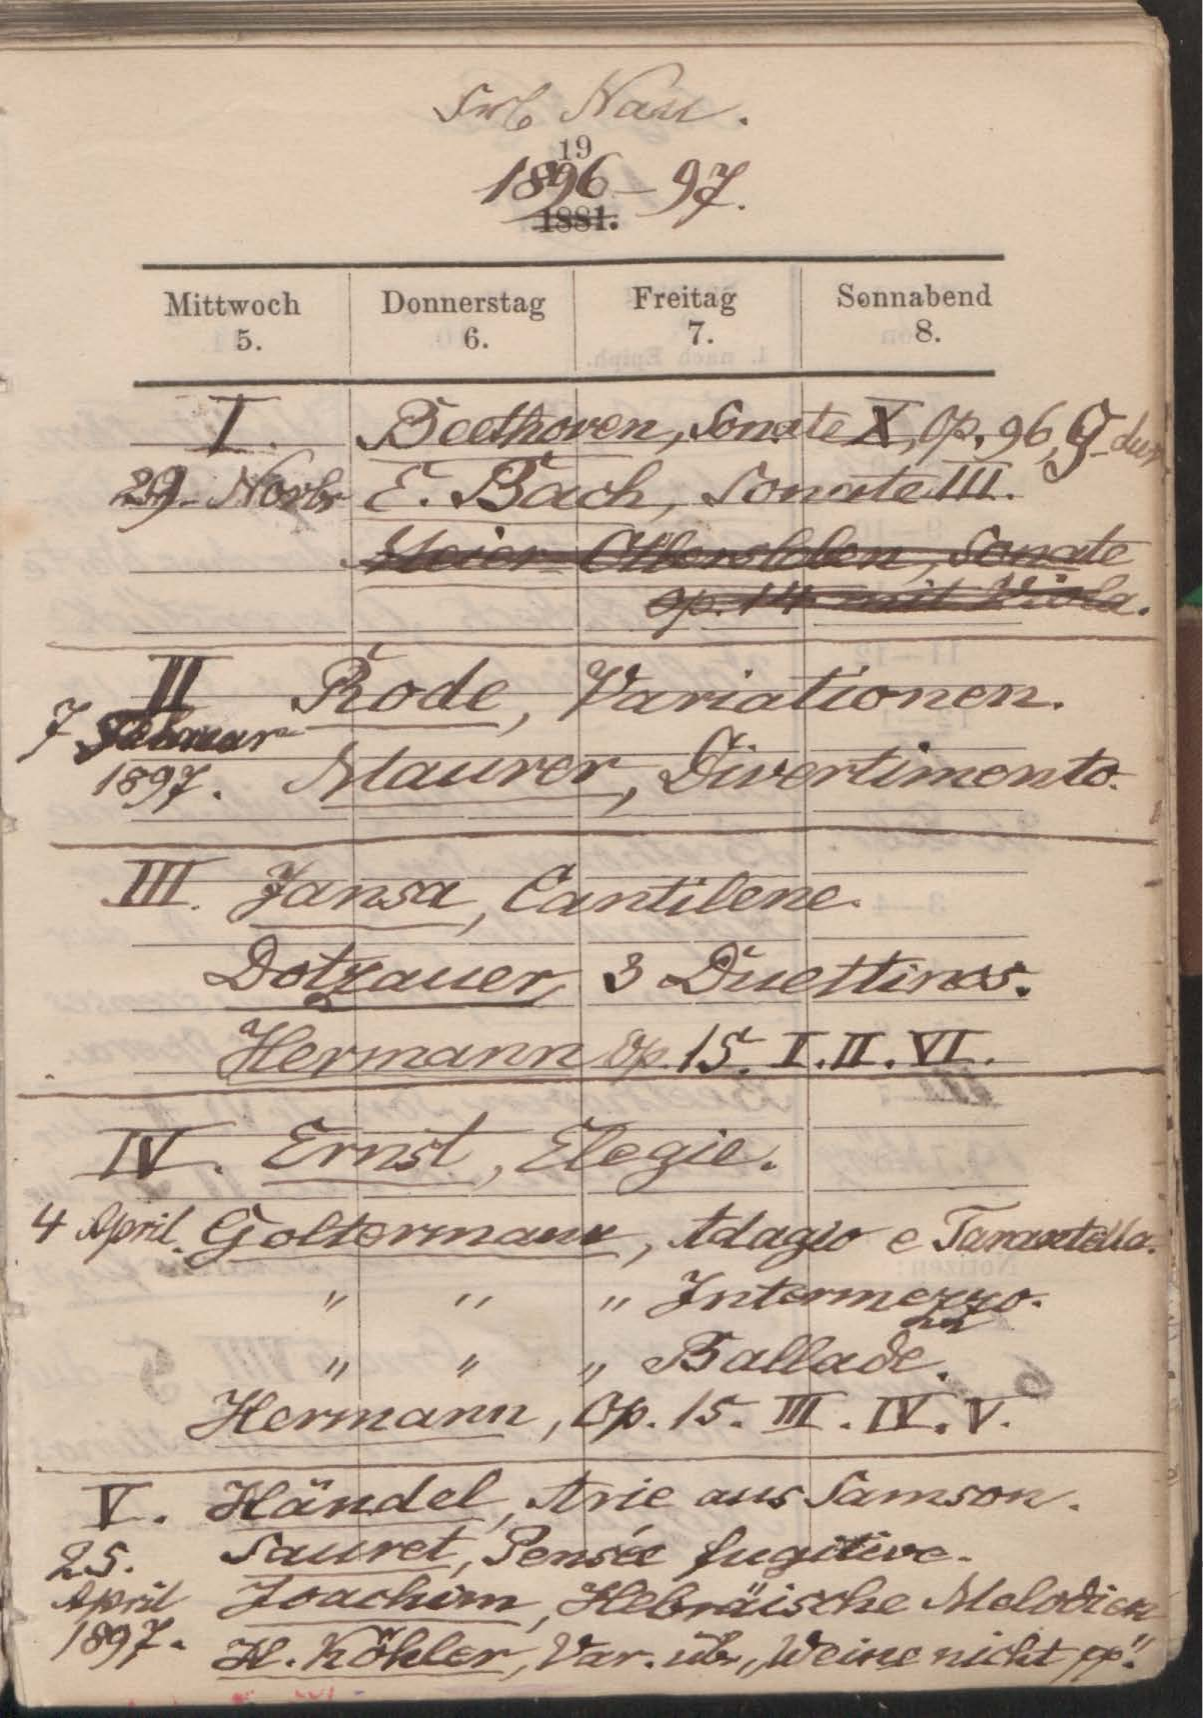 Nau.
19
1896–97.
1881.
Mittwoch Donnerstag Freitag Sonnabend
5. 6. 7. 8.
I. Beethoven, Sonate X, Op. 96, G-dur
29. Novbr E. Bach, Sonate III.
Meier-Olbersleben, Sonate
op. 14 mit Viola.
II Rode, Variationen.
7 Februar
1897. Maurer, Divertimento.
III. Jansa, Cantilene.
Dotzauer, 3 Duettinos.
Hermann Op. 15. I. II. VI.
IV. Ernst, Elegie.
4 April. Goltermann, Adagio e Tarantella.
" " " Intermezzo.
" " " Ballade.
Hermann, Op. 15. III. IV. V.
V. Händel, Arie aus Samson.
25. Sauret, Pensée fugitive.
April Joachim, Hebräische Melodien
1897. H. Köhler, Var. üb. „Weine nicht pp."